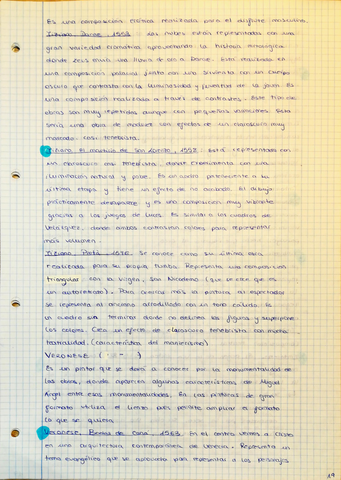 Es una composición erótica realizada para el disfrute masculino.
Tiziano, Danae, 1553: Las nubes están representadas con una
gran variedad cromática aprovechando la historia mitológica
donde Zeus manda una lluvia de oro a Danae. Está realizada en
una composición junto con una sirvienta con un cuerpo
oscuro que contrasta con la luminosidad y juventud de la joven. Es
una composición realizada a través de contrastes. Este tipo de
obras son muy repetidas aunque con pequeñas variaciones. Esta
sería una obra de madurez con efectos de un claroscuro muy
marcado casi tenebrista.
Tiziano, El martirio de San Lorenzo, 1558: Está representada con
un claroscuro más tenebrista, donde experimenta con una
iluminación natural y pobre. Es un cuadro perteneciente a su
última etapa y tiene un efecto de no acabado. El dibujo
prácticamente desaparece y es una composición muy vibrante
gracias a los juegos de luces. Es similar a los cuadros de
Velázquez, donde ambos contrastan colores para representar
más volumen.
Tiziano, Pietà, 1576: Se conoce como su última obra
realizada para su propia tumba. Representa una composición
triangular con la Virgen, San Nicodemo (que se dice que es
un autorretato). Para acercar más la pintura al espectador
se representa al anciano arrodillado con un tono cálido. Es
un cuadro sin terminar donde no delimita las figuras y superpone
los colores. Crea un efecto de claroscuro tenebrista con mucha
teatralidad. (Característica del manierismo)
VERONESE ( - )
Es un pintor que se dará a conocer por la monumentalidad en
las obras, donde aparecen algunas características de Miguel
Ángel entre esas monumentalidades. En las pinturas de gran
formato utiliza el lienzo pues permite ampliar el formato
lo que se quiera.
Veronese, Bodas de Caná, 1563: En el centro vemos a Cristo
en una arquitectura contemporánea de Venecia. Representa un
tema evangélico que se aprovecha para representar a los personajes
19